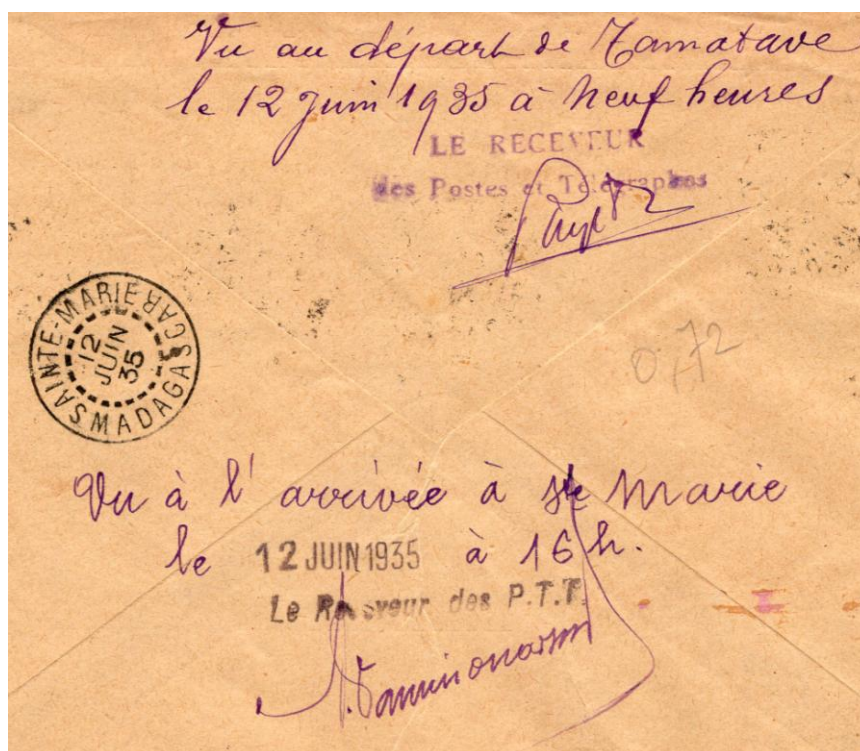 Vu au départ de Tamatave
le 12 Juin 1935 à neuf heures
LE RECEVEUR
des Postes et Télégraphes
SAINTE-MARIE
12
JUIN
35
MADAGASCAR
0,72
Vu à l'arrivée à Ste Marie
le 12 JUIN 1935 à 16 h.
Le Receveur des P.T.T.